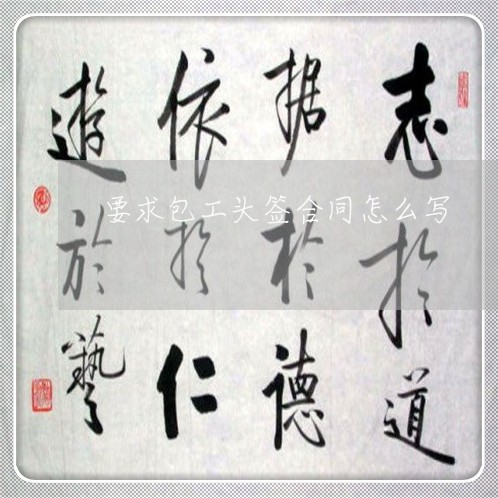 志於道
据於德
依於仁
遊於藝
要求包工头签合同怎么写